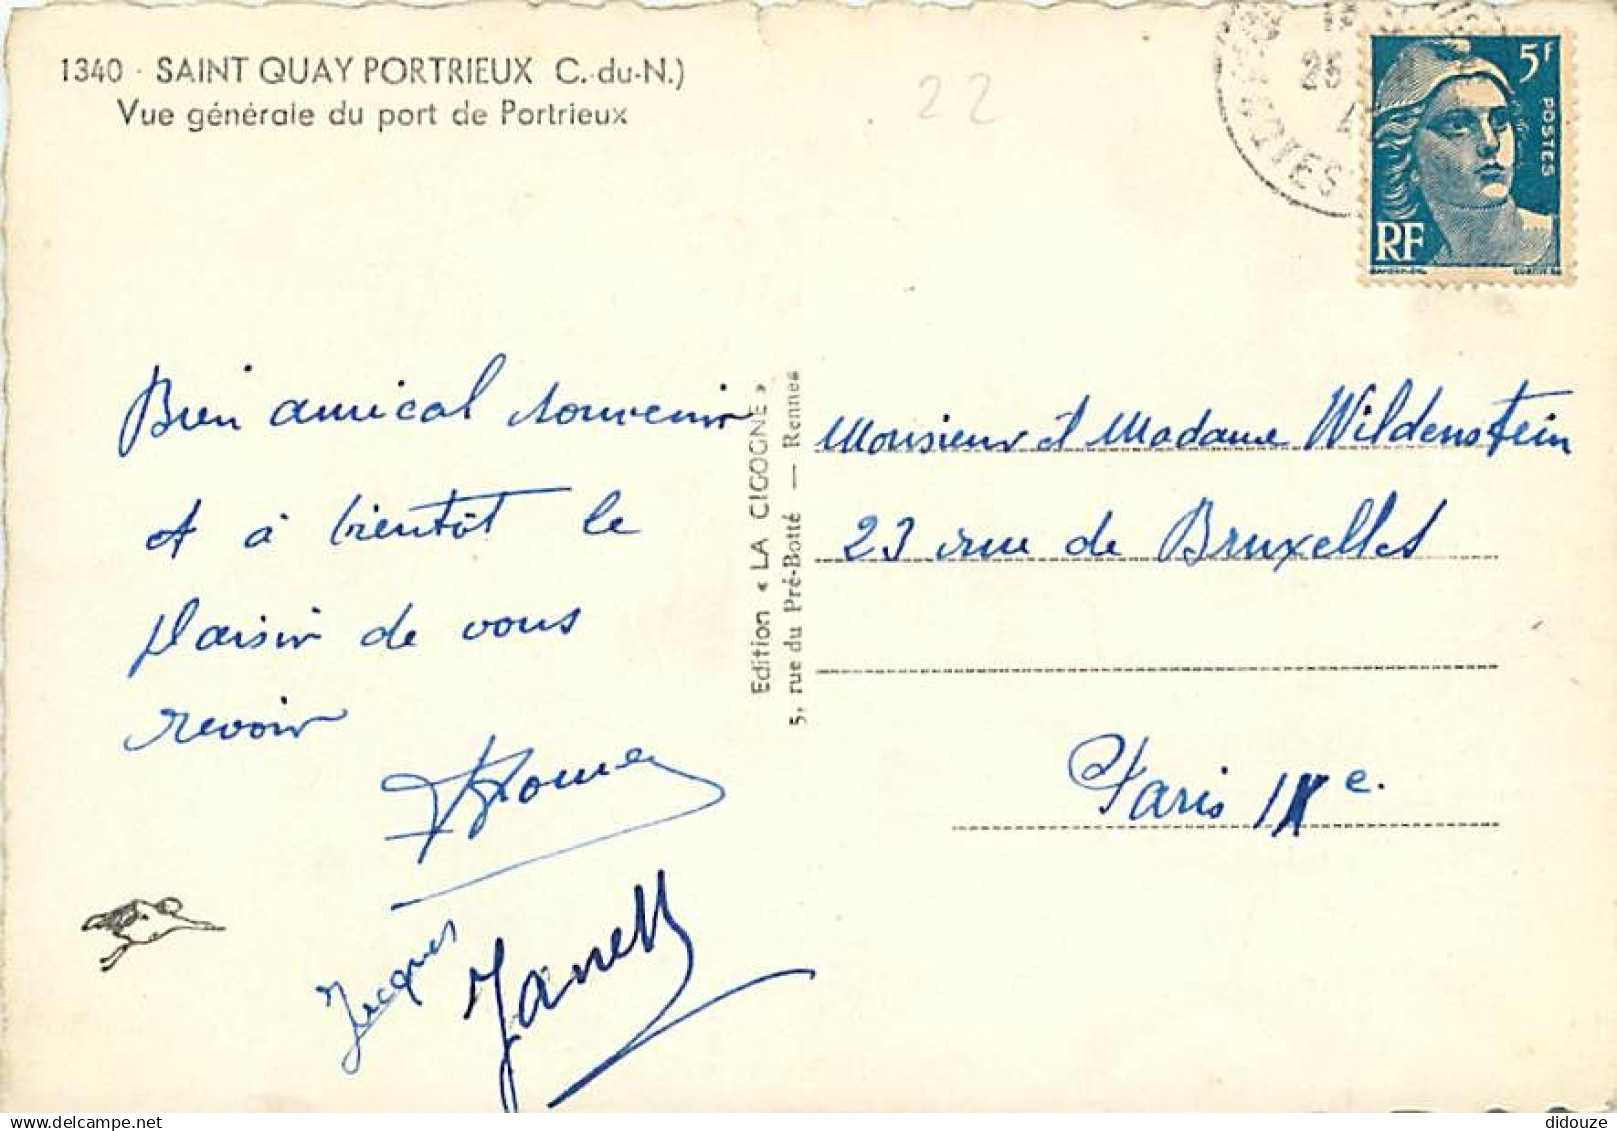 1340 - SAINT QUAY PORTRIEUX C.-du-N.)
Vue générale du port de Portrieux
22
25
5F
POSTES
RF
Bien amical souvenir
et à bientôt le
plaisir de vous
revoir
Jacques
Janett
Edition « LA CIGOGNE »
5, rue du Pré-Botté — Rennes
Monsieur et Madame Wildenstein
23 rue de Bruxelles
Paris IXe.
didouze